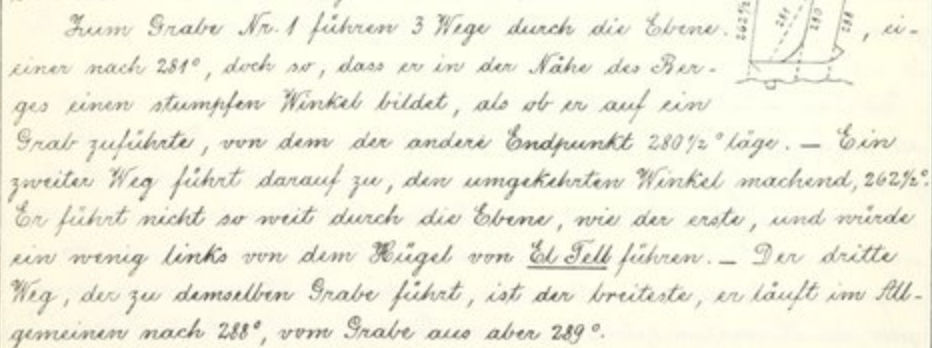 Zum Grabe Nr. 1 führen 3 Wege durch die Ebene. 262½ 281 280 288 , ei-
einer nach 281°, doch so, dass er in der Nähe des Ber-
ges einen stumpfen Winkel bildet, als ob er auf ein
Grab zuführte, von dem der andere Endpunkt 280½° läge. — Ein
zweiter Weg führt darauf zu, den umgekehrten Winkel machend, 262½°.
Er führt nicht so weit durch die Ebene, wie der erste, und würde
ein wenig links von dem Hügel von El Tell führen. — Der dritte
Weg, der zu demselben Grabe führt, ist der breiteste, er läuft im All-
gemeinen nach 288°, vom Grabe aus aber 289°.